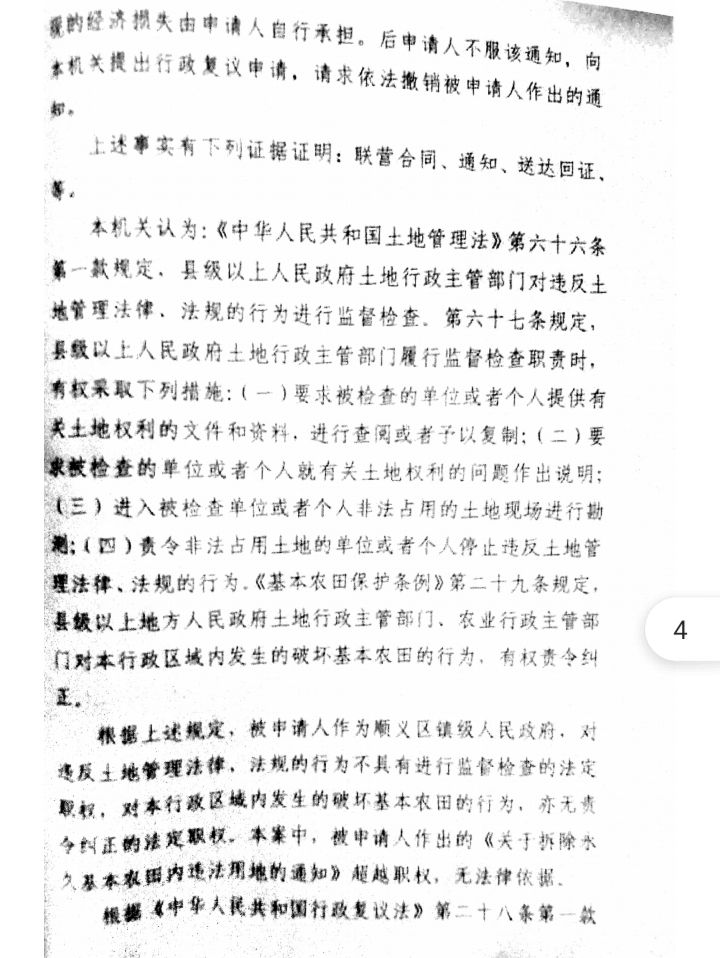 的经济损失由申请人自行承担。后申请人不服该通知，向
本机关提出行政复议申请，请求依法撤销被申请人作出的通
知。
上述事实有下列证据证明：联营合同、通知、送达回证、
等。
本机关认为：《中华人民共和国土地管理法》第六十六条
第一款规定、县级以上人民政府土地行政主管部门对违反土
地管理法律、法规的行为进行监督检查。第六十七条规定，
县级以上人民政府土地行政主管部门履行监督检查职责时，
有权采取下列措施：（一）要求被检查的单位或者个人提供有
关土地权利的文件和资料，进行查阅或者予以复制；（二）要
求被检查的单位或者个人就有关土地权利的问题作出说明；
（三）进入被检查单位或者个人非法占用的土地现场进行勘
测；（四）责令非法占用土地的单位或者个人停止违反土地管
理法律、法规的行为。《基本农田保护条例》第二十九条规定，
县级以上地方人民政府土地行政主管部门、农业行政主管部
门对本行政区域内发生的破坏基本农田的行为，有权责令纠
正。
根据上述规定，被申请人作为顺义区镇级人民政府，对
违反土地管理法律、法规的行为不具有进行监督检查的法定
职权，对本行政区域内发生的破坏基本农田的行为，亦无责
令纠正的法定职权。本案中，被申请人作出的《关于拆除永
久基本农田内违法用地的通知》超越职权，无法律依据。
根据《中华人民共和国行政复议法》第二十八条第一款
4